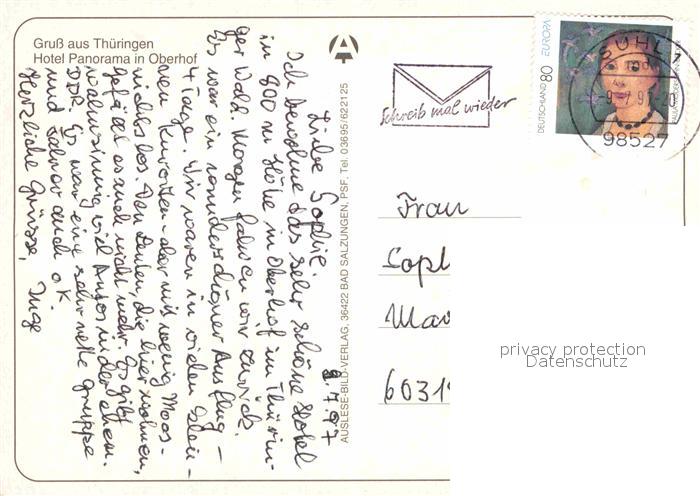 Gruß aus Thüringen
Hotel Panorama in Oberhof
9.7.97
Liebe Sophie.
Ich bewohne das sehr schöne Hotel
in 800 m Höhe in Oberhof im Thürin-
ger Wald. Morgen fahren wir zurück.
Es war ein wunderschöner Ausflug –
4 Tage. Wir waren in vielen klei-
nen Kurorten – aber mit wenig Moos –
nichts los. Den Leuten, die hier wohnen,
gefällt es auch nicht mehr. Es gibt
wahnsinnig viel Autos in der ehem.
DDR. Es war eine sehr nette Gruppe
und Fahrer auch o.K.
Herzliche Grüsse, Inge
AUSLESE-BILD-VERLAG, 36422 BAD SALZUNGEN, PSF, Tel. 03695/622125
Schreib mal wieder
DEUTSCHLAND 80 EUROPA
SUHL 1
98527
Frau
Soph
60319
privacy protection
Datenschutz